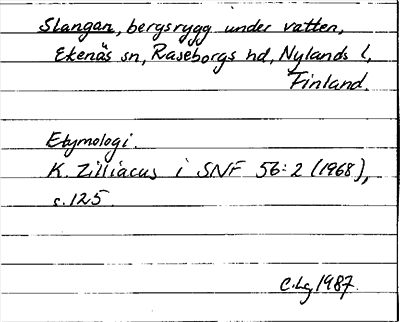 Slangan, bergsrygg under vatten,
Ekenäs sn, Raseborgs hd, Nylands l,
Finland.
Etymologi.
K. Zilliacus i SNF 56:2 (1968),
s.125.
C.Lg 1987.